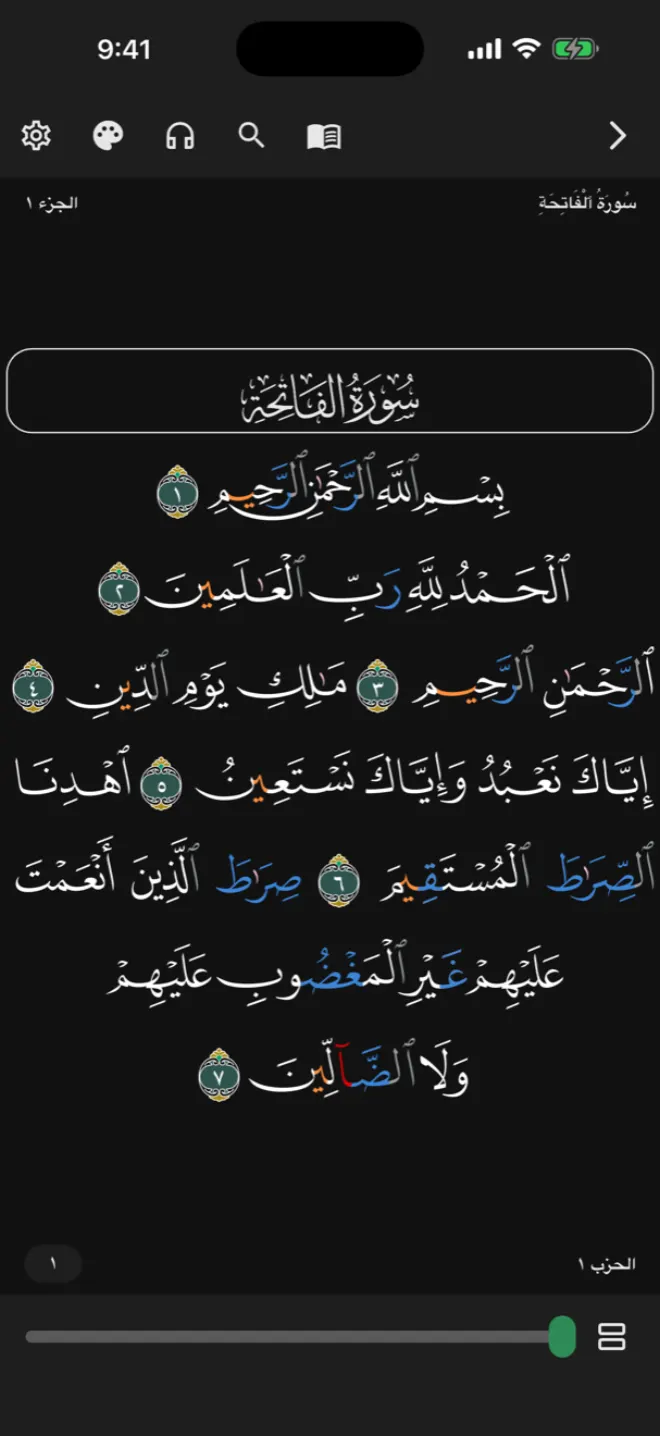 9:41
سُورَةُ ٱلْفَاتِحَةِ
الجزء ١
سُورَةُ الفَاتِحَةِ
بِسْمِ ٱللَّهِ ٱلرَّحْمَٰنِ ٱلرَّحِيمِ ١
ٱلْحَمْدُ لِلَّهِ رَبِّ ٱلْعَٰلَمِينَ ٢
ٱلرَّحْمَٰنِ ٱلرَّحِيمِ ٣ مَٰلِكِ يَوْمِ ٱلدِّينِ ٤
إِيَّاكَ نَعْبُدُ وَإِيَّاكَ نَسْتَعِينُ ٥ ٱهْدِنَا
ٱلصِّرَٰطَ ٱلْمُسْتَقِيمَ ٦ صِرَٰطَ ٱلَّذِينَ أَنْعَمْتَ
عَلَيْهِمْ غَيْرِ ٱلْمَغْضُوبِ عَلَيْهِمْ
وَلَا ٱلضَّآلِّينَ ٧
الحزب ١
١